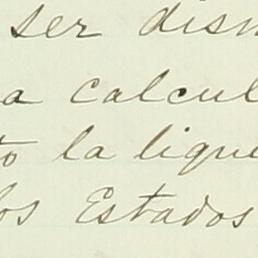 ser dism
a calcul
to la lique
los Estados